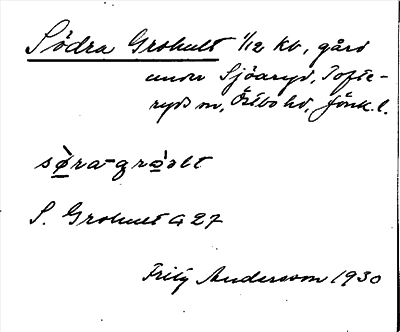 Södra Grohult 1/12 kv, gård
under Sjöaryd, Tofte-
ryds sn, Östbo hd, Jönk. l.
sø̀ra-grø̀ɷlt
S. Grohult G 27
Fritz Andersson 1930